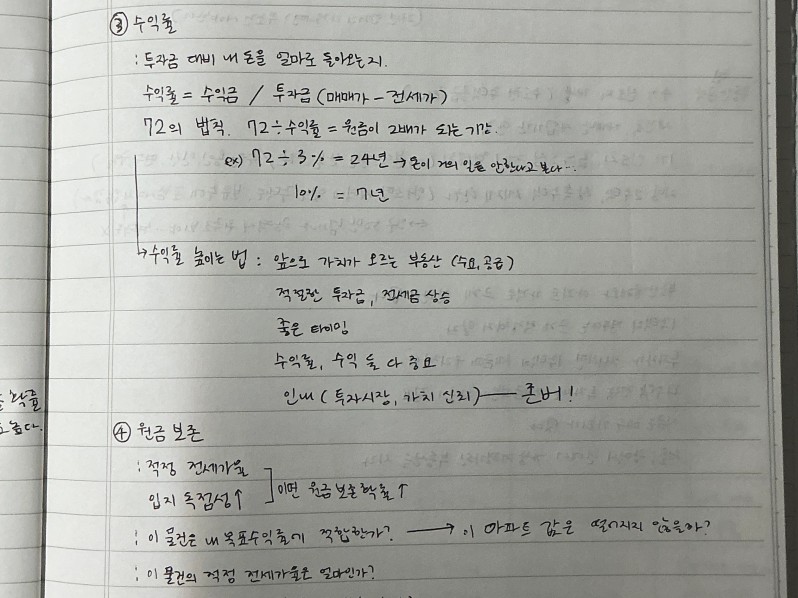 ③ 수익률
: 투자금 대비 내 돈을 얼마로 돌아오는지.
수익률 = 수익금 / 투자금 (매매가 - 전세가)
72의 법칙. 72÷수익률 = 원금이 2배가 되는 기간.
ex) 72 ÷ 3% = 24년 → 돈이 거의 일을 안한다고 보다…
10% = 7년
→ 수익률 높이는 법 : 앞으로 가치가 오르는 부동산 (수요, 공급)
적절한 투자금, 전세금 상승
좋은 타이밍
수익률, 수익 둘 다 중요
인내 ( 투자시장, 가치 신뢰) — 존버!
률
높다.
④ 원금 보존
: 적정 전세가율
입지 독점성↑ ] 이면 원금보존확률↑
: 이 물건은 내 목표수익률에 적합한가? → 이 아파트 값은 떨어지지 않을까?
: 이 물건의 적정 전세가율은 얼마인가?